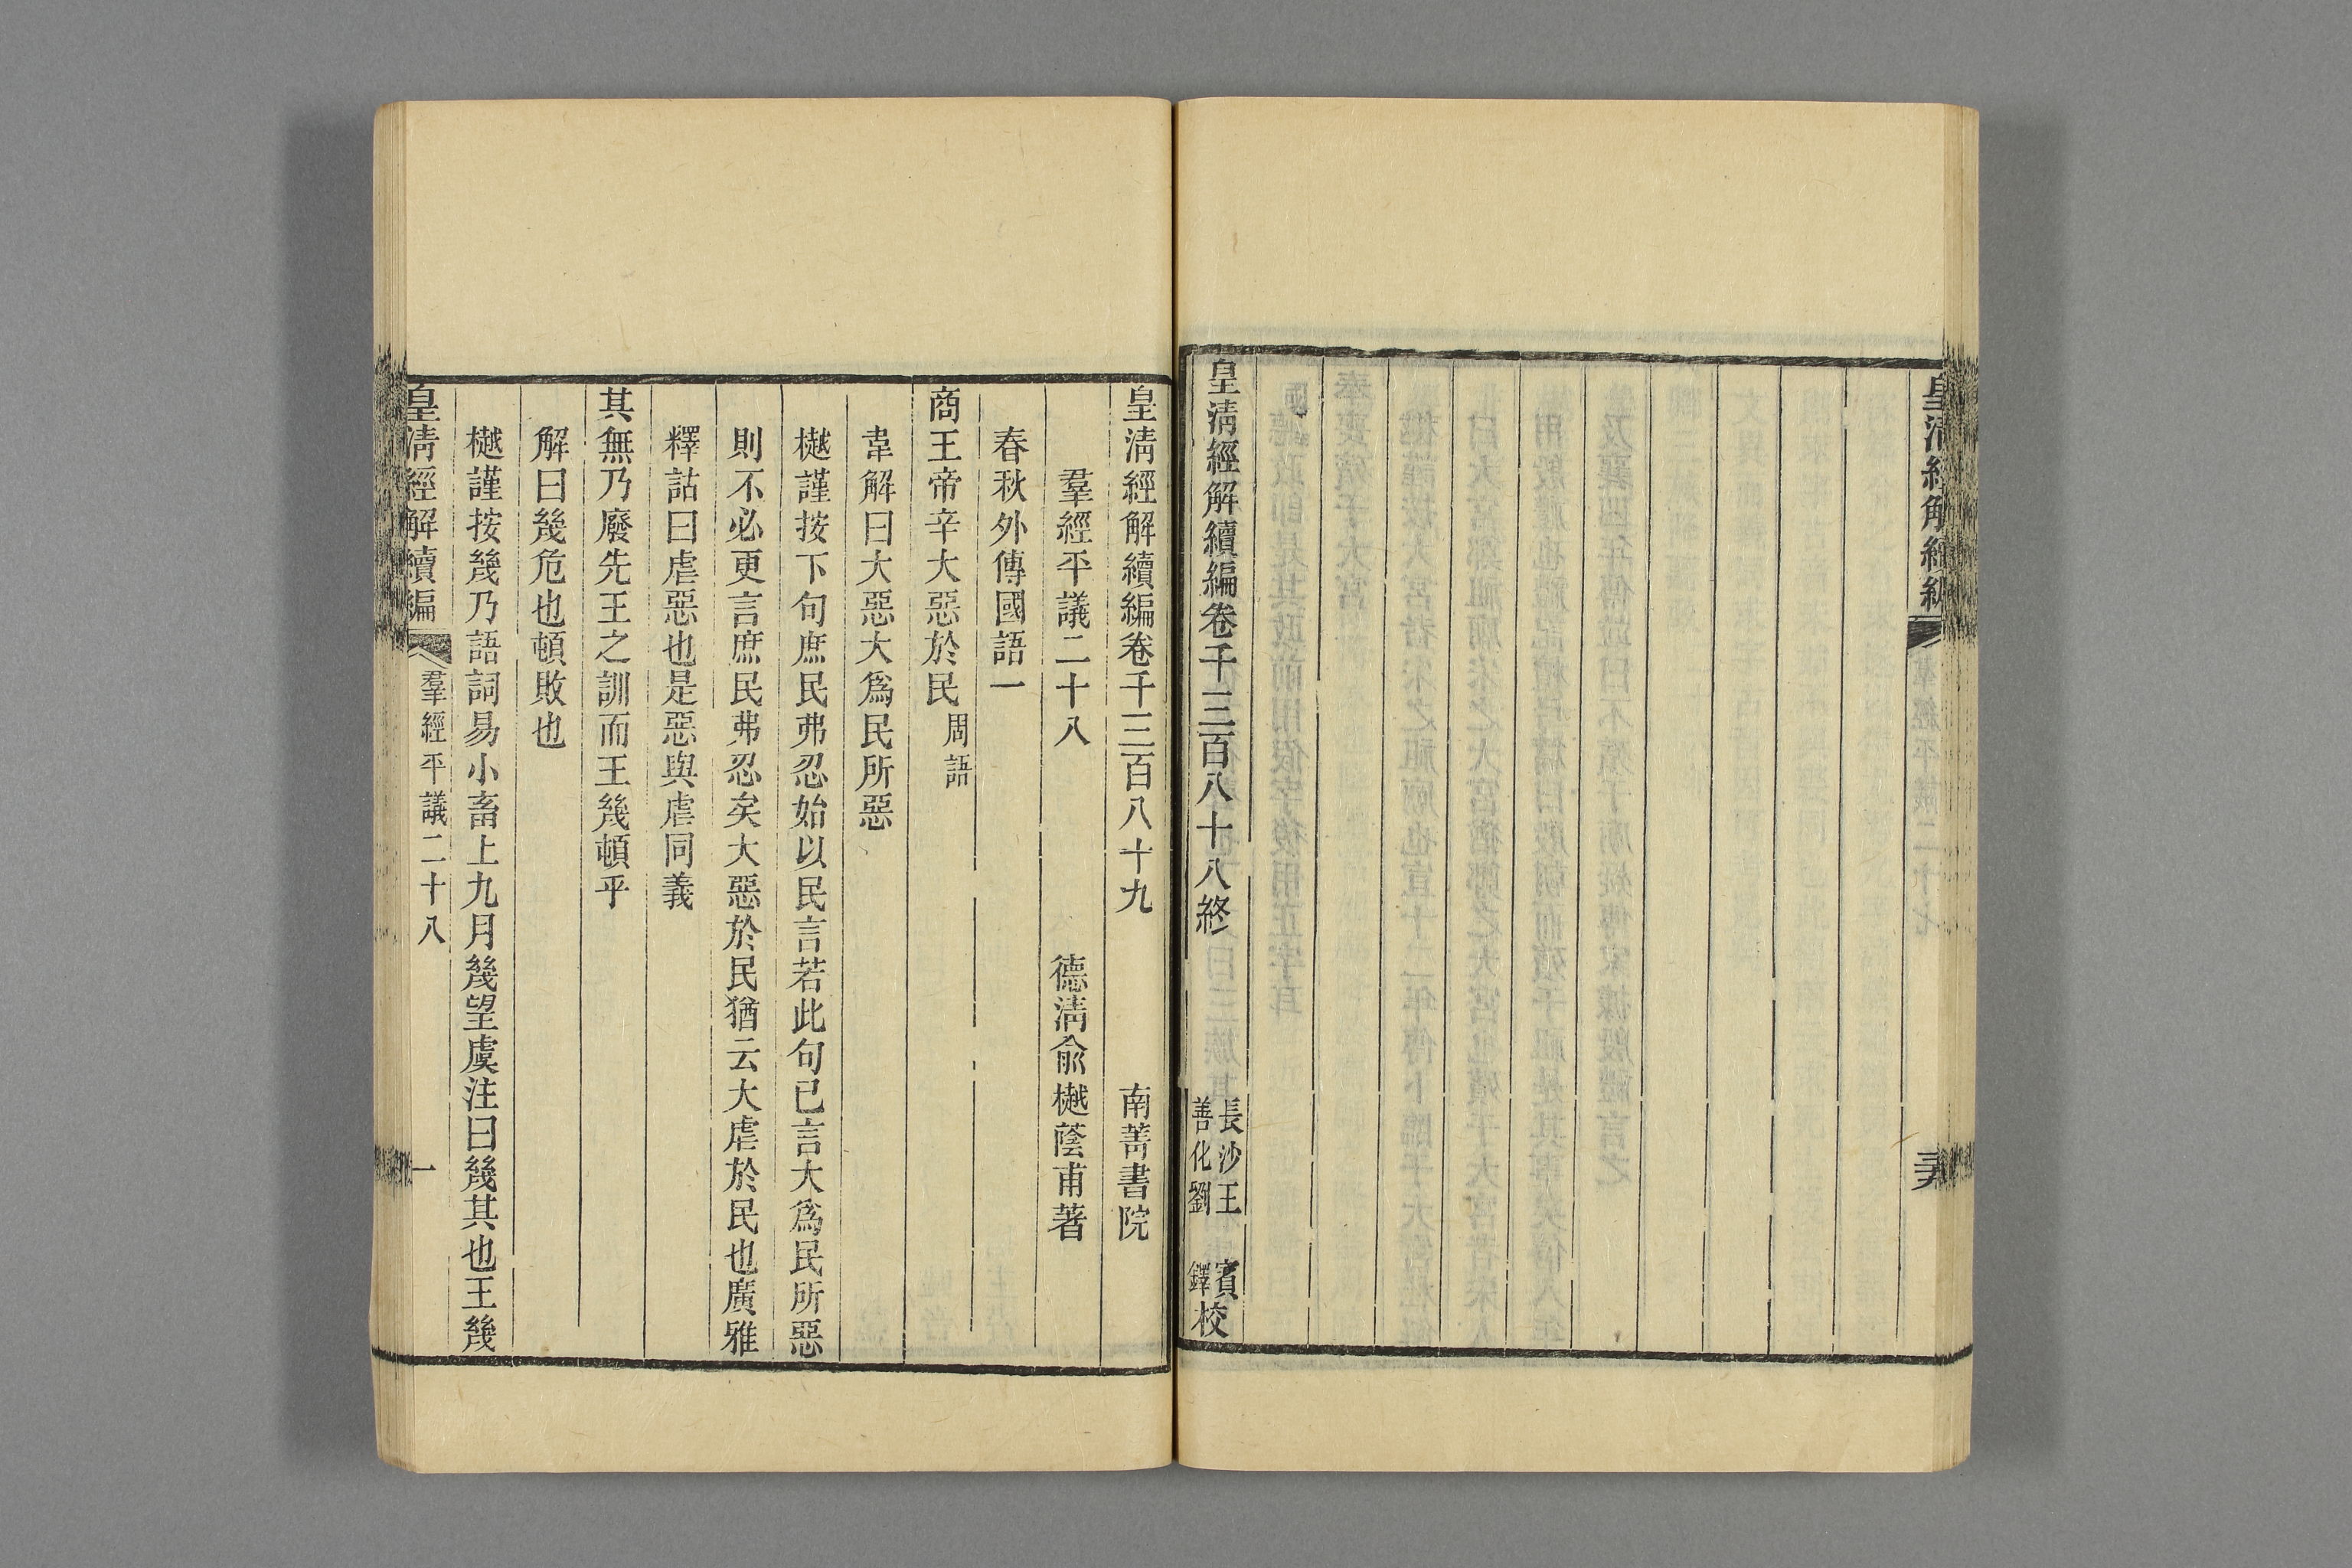 皇清經解續編
皇清經解續編卷千三百八十八終
長沙王 賓
善化劉 鐸
校
皇清經解續編卷千三百八十九 南菁書院
羣經平議二十八 德清俞樾蔭甫著
春秋外傳國語一
商王帝辛大惡於民周語
韋解曰大惡大爲民所惡
樾謹按下句庶民弗忍始以民言若此句已言大爲民所惡
則不必更言庶民弗忍矣大惡於民猶云大虐於民也廣雅
釋詁曰虐惡也是惡與虐同義
其無乃廢先王之訓而王幾頓乎
解曰幾危也頓敗也
樾謹按幾乃語詞易小畜上九月幾望虞注曰幾其也王幾
皇清經解續編 羣經平議二十八 一